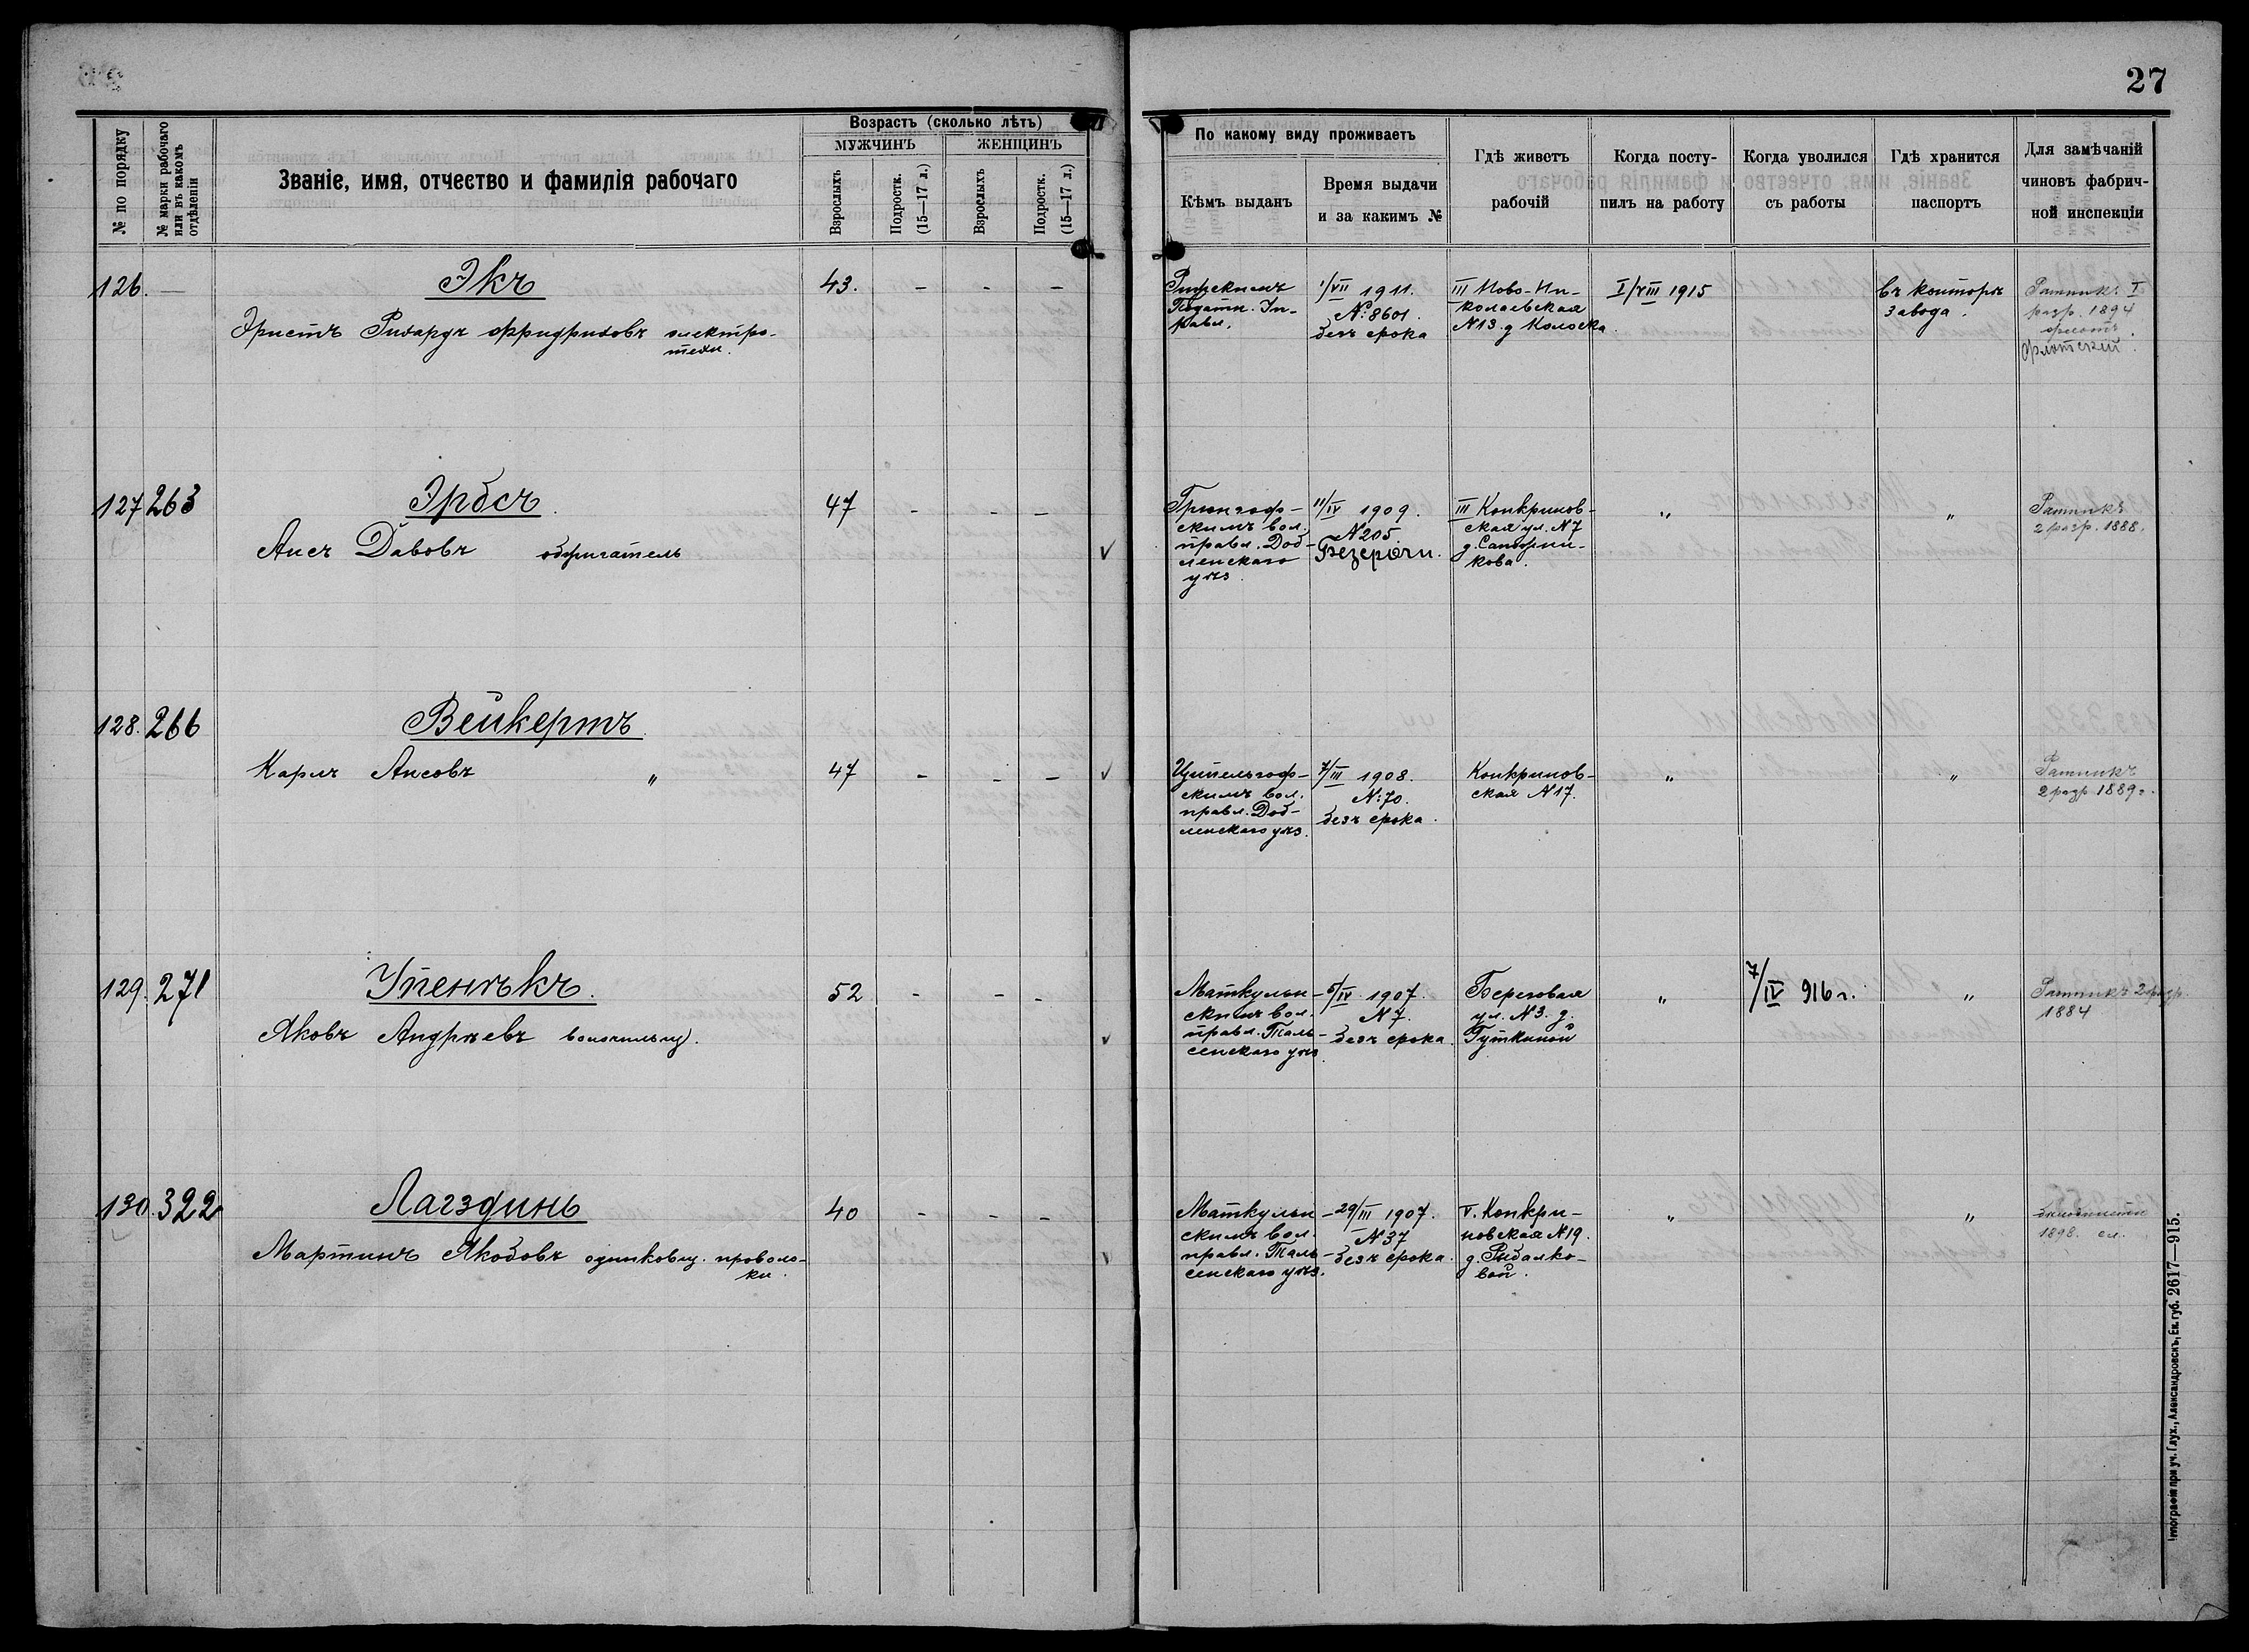 27
№ по порядку
№ марки рабочаго
или въ какомъ
отдѣленіи
Званіе, имя, отчество и фамилія рабочаго
Возрастъ (сколько лѣтъ)
МУЖЧИНЪ
ЖЕНЩИНЪ
Взрослыхъ
Подростк.
(15—17 л.)
Взрослыхъ
Подростк.
(15—17 л.)
По какому виду проживаетъ
Кѣмъ выданъ
Время выдачи
и за какимъ №
Гдѣ живетъ
рабочій
Когда посту-
пилъ на работу
Когда уволился
съ работы
Гдѣ хранится
паспортъ
Для замѣчаній
чиновъ фабрич-
ной инспекціи
126. —
Экъ
Эрнстъ Рихардъ Фридриховъ электро-
техн.
43. - - -
Рижскимъ
Податн. Ин-
1/VII 1911.
№ 8601.
безъ срока
III Ново-Ни-
колаевская
№13. д Колоска.
I/VIII 1915
въ конторѣ
завода.
Ратникъ I
разр. 1894
флотскій.
127 263
Эрбсъ
Ансъ Давовъ обжигатель
47 - - -
Грюнгоф-
скимъ вол.
правл. Доб-
ленскаго
уѣз.
11/IV 1909.
№205.
Безсрочн.
III Конкринов-
ская ул. №7
д. Сапожни-
кова.
"
"
Ратникъ
2 разр. 1888.
128. 266
Вейкертъ
Карлъ Ансовъ "
47 - - -
Ципельгоф-
скимъ вол.
правл. Доб-
ленскаго уѣз.
7/III 1908.
№:70.
безъ срока.
Конкринов-
ская №17.
"
"
Ратникъ
2 разр 1889г.
129. 271
Упенѣкъ.
Яковъ Андрѣевъ волочильщ.
52 - - -
Маткульн-
скимъ вол.
правл. Таль-
сенскаго уѣз
5/IV 1907.
№7.
безъ срока.
Береговая
ул. №3. д.
Гуткиной
"
7/IV 916 г.
"
Ратникъ 2 разр.
1884
130. 322
Лагздинь
Мартинъ Якобовъ оцинковщ. проволо-
ки.
40 - - -
Маткульн-
скимъ вол.
правл. Таль-
сенскаго уѣз.
29/III 1907.
№37
безъ срока.
V. Конкри-
новская №19.
д. Рыбалко-
вой.
"
"
1898.
Типографія при уч. Глух., Александровскъ, Ек. губ. 2617—915.